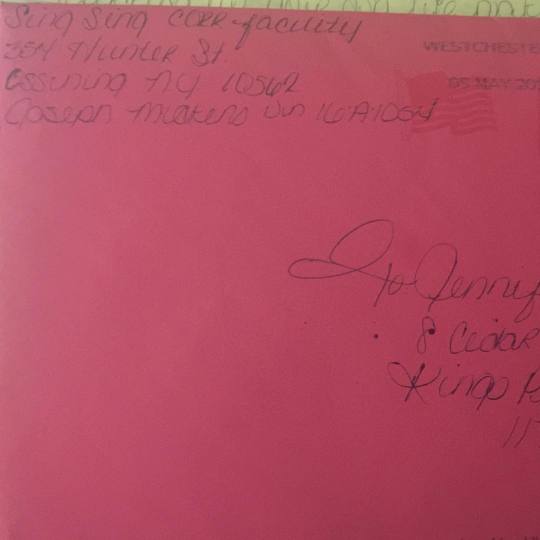 Sing Sing Corr facility
354 Hunter St.
Ossining NY 10562
Joseph Mickens Din 16A1054
WESTCHESTE
05 MAY 20
To Jennif
8 Cedar
Kings P
11